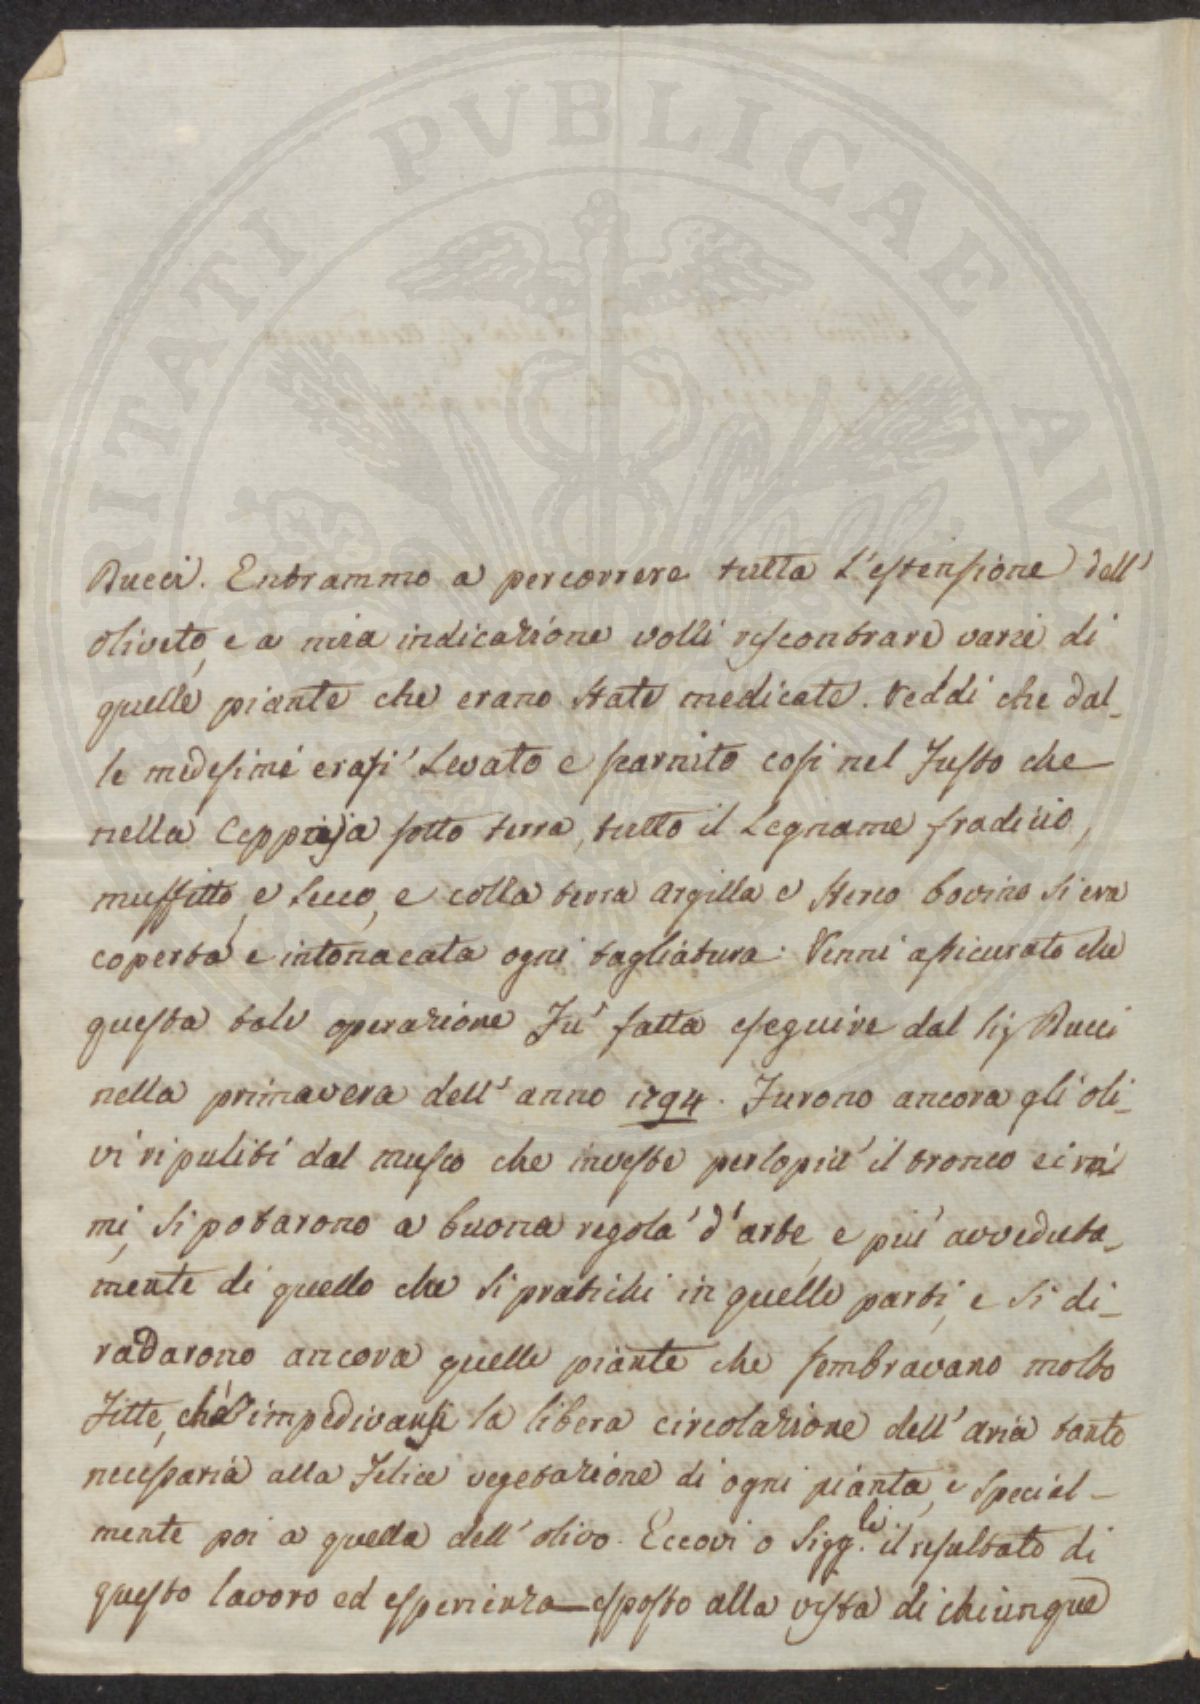 PROSPERITATI PUBLICAE AUGENDAE
Bucci. Entrammo a percorrere tutta l'estensione dell'
oliveto, e a mia indicazione volli riscontrare varie di
quelle piante che erano state medicate. Veddi che dal_
le medesime erasi levato e sarnito così nel Fusto che
nella Ceppaja sotto terra, tutto il Legname fradicio,
muffitto, e secco, e colla terra argilla e sterco bovino si era
coperta e intonacata ogni tagliatura. Venni assicurato che
questa tale operazione Fu' fatta eseguire dal Sig Bucci
nella primavera dell' anno 1794. Furono ancora gli oli_
vi ripuliti dal musco che investe perlopiù il tronco e i ra
mi, si potarono a buona regola d'arte, e più avveduta_
mente di quello che si pratichi in quelle parti, e si di_
radarono ancora quelle piante che sembravano molto
Fitte, che impedivansi la libera circolazione dell' aria tanto
necessaria alla Felice vegetazione di ogni pianta, e special_
mente poi a quella dell' olivo. Eccovi o Sigg.ri il resultato di
questo lavoro ed esperienza esposto alla vista di chiunque